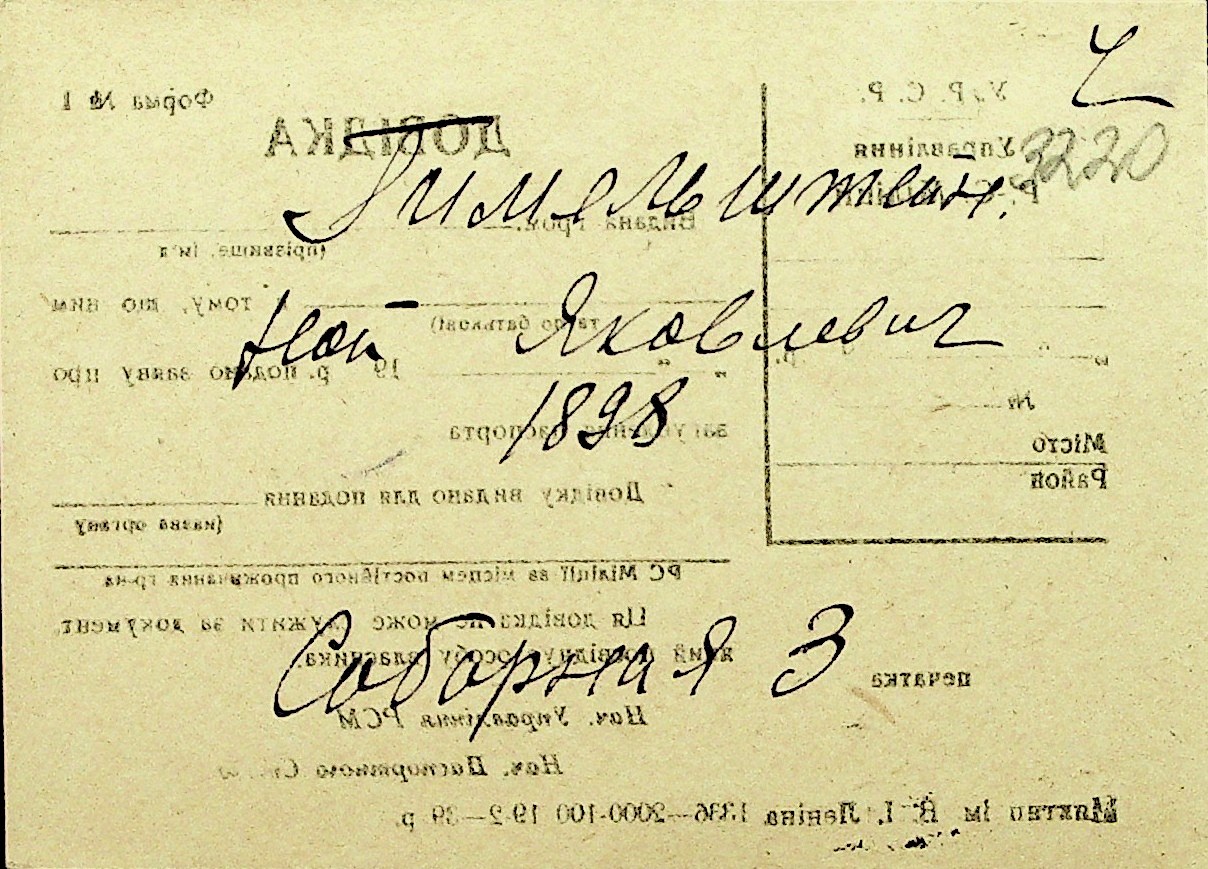 Форма № 1
У. Р. С. Р.
3220
Управління
Р. С. Міліції
ДОВІДКА
Гимельштейн.
Видана гром.
(прізвище, ім'я
Ной Яковлевич
в тому, що ним
та по батькові)
19 р. подано заяву про
1898
загублення паспорта
№
Місто
Район
Довідку видано для подання
(назва органу
РС Міліції за місцем постійного прожування гр-на
Ця довідка не може служити за документ,
який посвідчує особу власника.
Соборная 3
печатка
Нач. Управління РСМ
Нач. Паспортного
Мяктец ім В. І. Леніна 1336—2000-100 19-2—39 р.